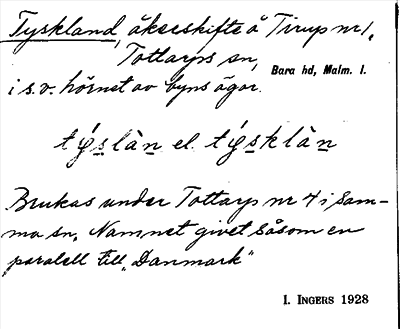 Tyskland, åkerskifte å Tirup nr 1,
Tottarps sn,
Bara hd, Malm. l.
i s.v. hörnet av byns ägor.
týslàn el. týsklàn
Brukas under Tottarp nr 4 i sam-
ma sn. Namnet givet såsom en
paralell till "Danmark"
I. INGERS 1928